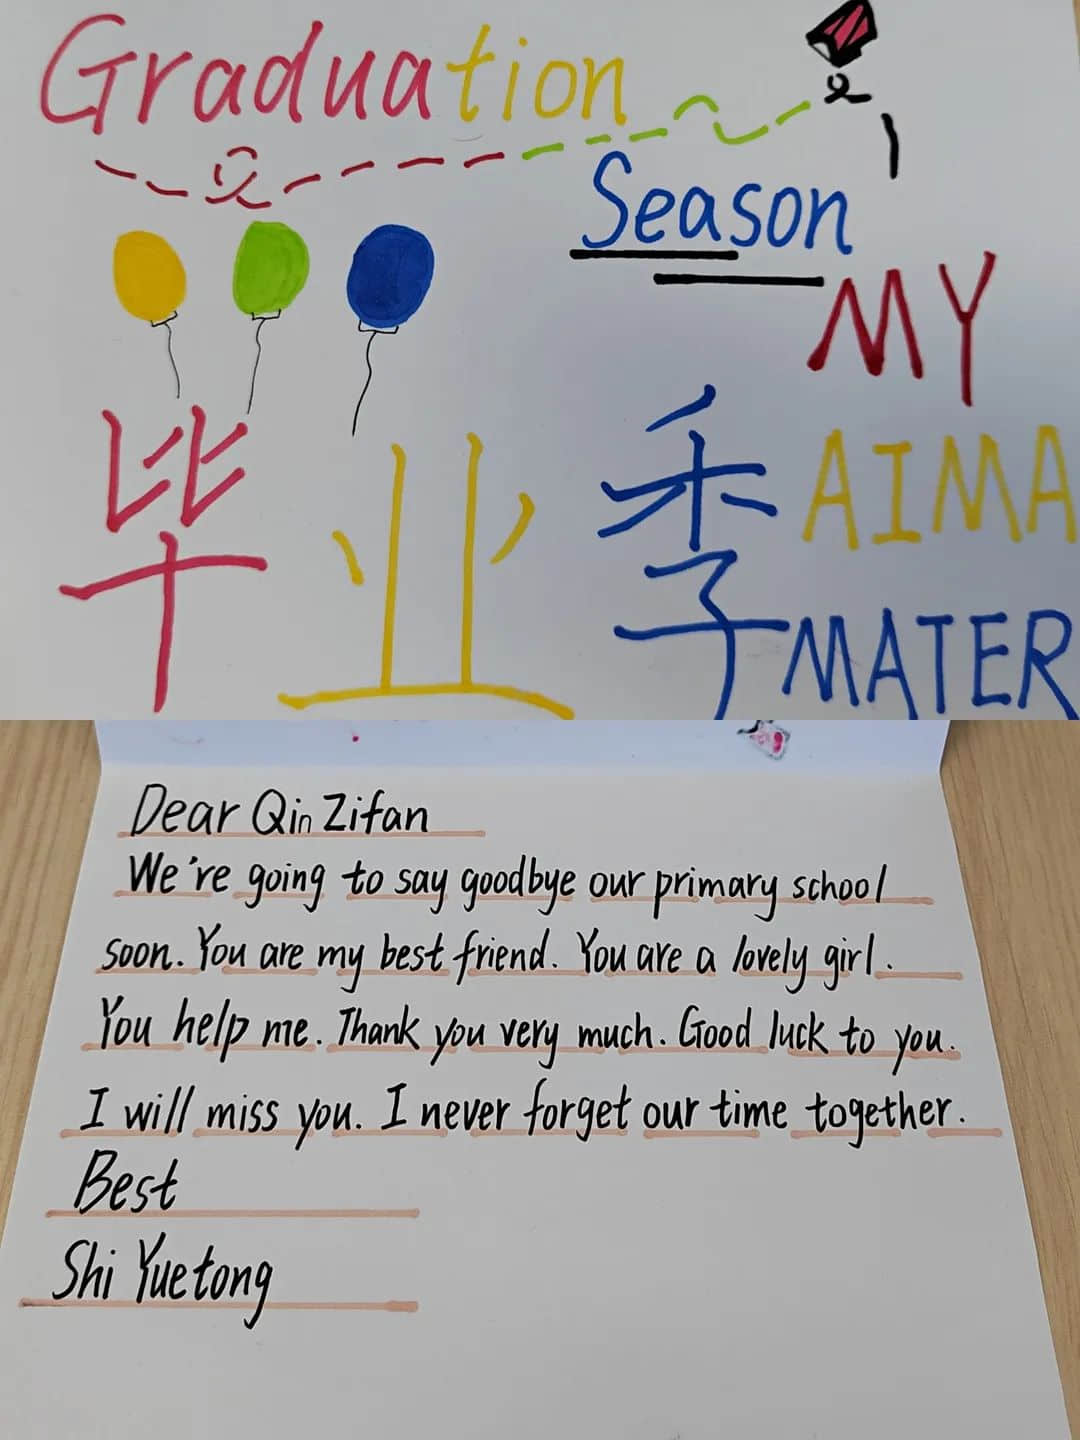 Graduation
Season
MY
毕业季
AIMA
MATER
Dear Qin Zifan
We're going to say goodbye our primary school
soon. You are my best friend. You are a lovely girl.
You help me. Thank you very much. Good luck to you.
I will miss you. I never forget our time together.
Best
Shi Yuetong